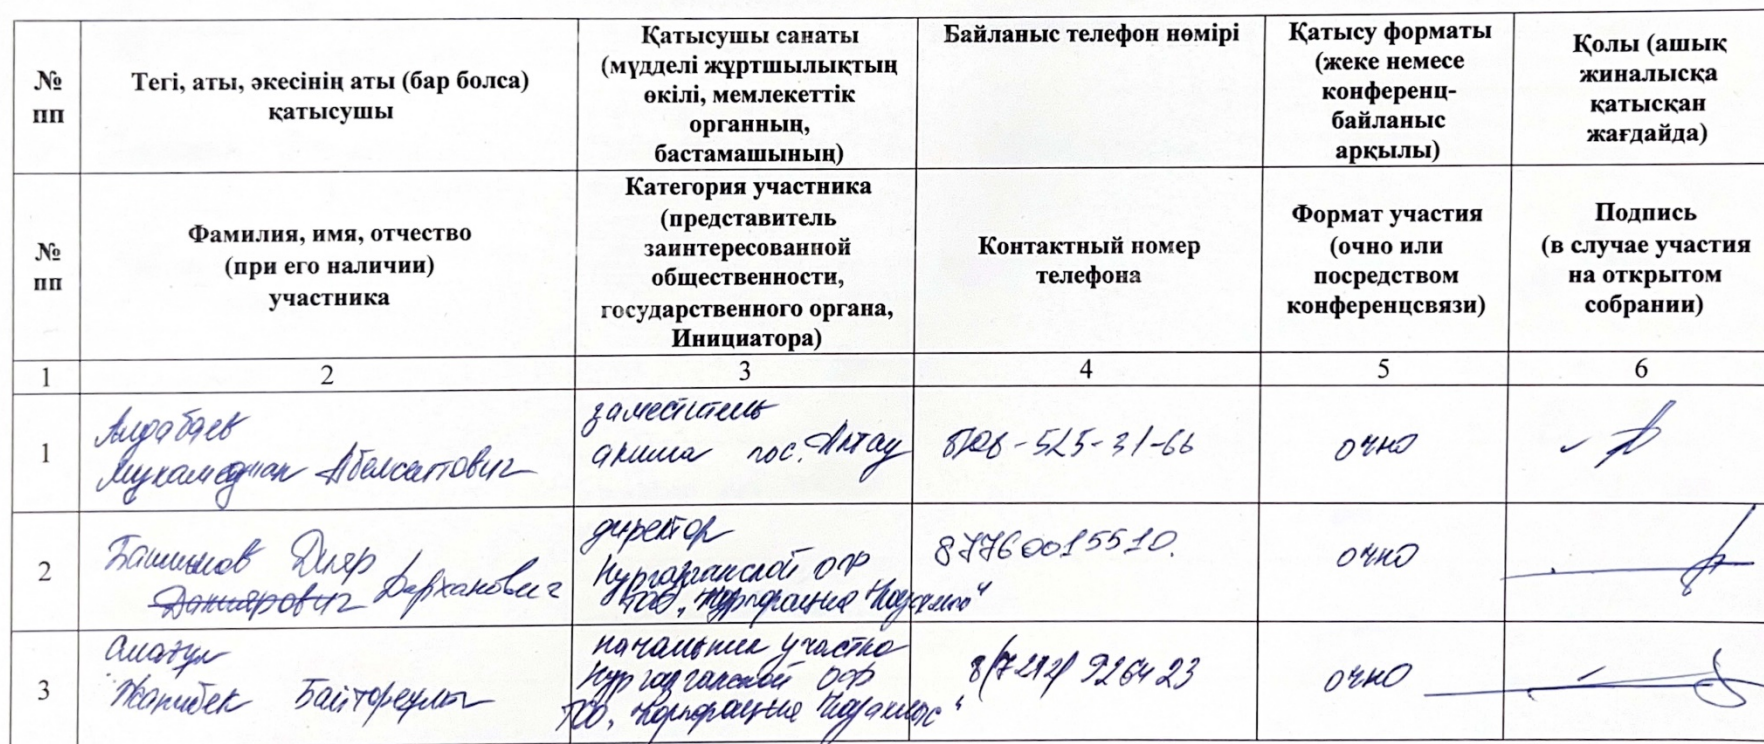 № пп
Тегі, аты, әкесінің аты (бар болса)
қатысушы
Қатысушы санаты
(мүдделі жұртшылықтың
өкілі, мемлекеттік
органның,
бастамашының)
Байланыс телефон нөмірі
Қатысу форматы
(жеке немесе
конференц-
байланыс
арқылы)
Қолы (ашық
жиналысқа
қатысқан
жағдайда)
№ пп
Фамилия, имя, отчество
(при его наличии)
участника
Категория участника
(представитель
заинтересованной
общественности,
государственного органа,
Инициатора)
Контактный номер
телефона
Формат участия
(очно или
посредством
конференцсвязи)
Подпись
(в случае участия
на открытом
собрании)
1 2 3 4 5 6
1
Алдабаев
Мухамеджан
заместитель
акима пос. Актау
525-31-66
очно
2
Дияр
Дарханович
директор
ОФ
ТОО „Корпорация Казахмыс“
87760015510.
очно
3
Жанибек Байтореулы
начальник участка
ОФ
ТОО „Корпорация Казахмыс“
9264 23
очно